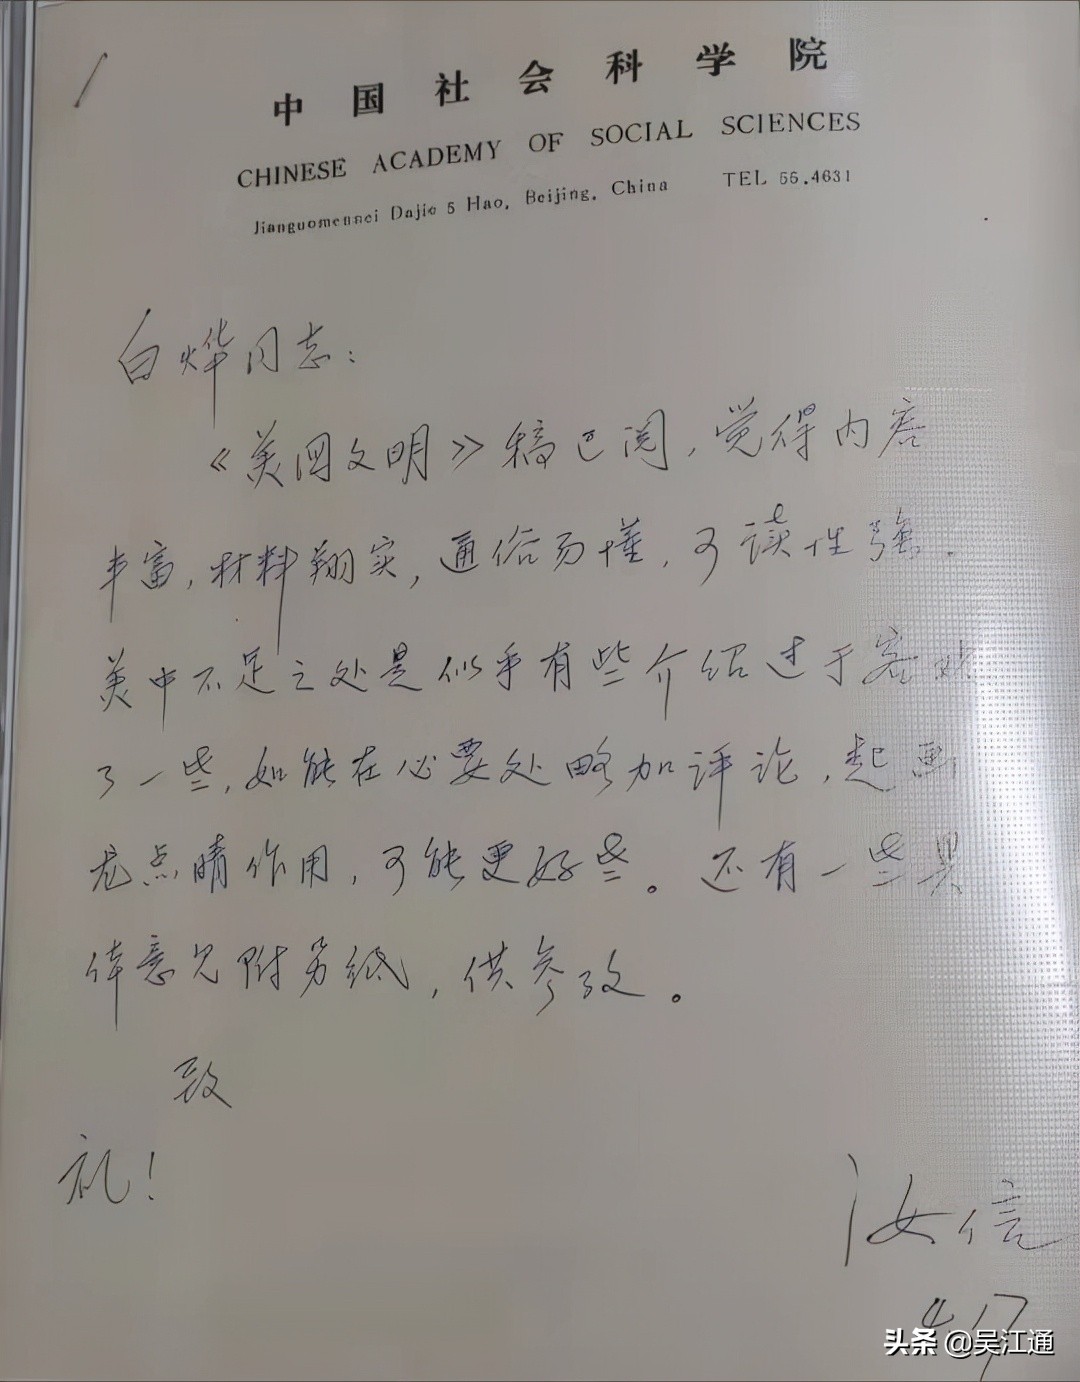 中国社会科学院
CHINESE ACADEMY OF SOCIAL SCIENCES
Jianguomennei Dajie 5 Hao, Beijing, China TEL 55.4631
白烨同志：
《美国文明》稿已阅，觉得内容
丰富，材料翔实，通俗易懂，可读性强．
美中不足之处是似乎有些介绍过于客观
了一些，如能在必要处略加评论，起画
龙点睛作用，可能更好些。还有一些具
体意见附另纸，供参攷。
致
礼！
汝信
4.17
头条 @吴江通